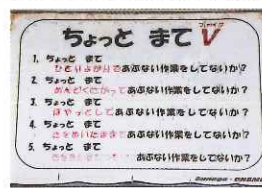 ちょっと まて V
1. ちょっと まて
ひとりよがりであぶない作業をしてないか?
2. ちょっと まて
めんどくさがってあぶない作業をしてないか?
3. ちょっと まて
ぼやっとしてあぶない作業をしてないか?
4. ちょっと まて
あぶない作業をしてないか?
5. ちょっと まて
あぶない作業をしてないか?